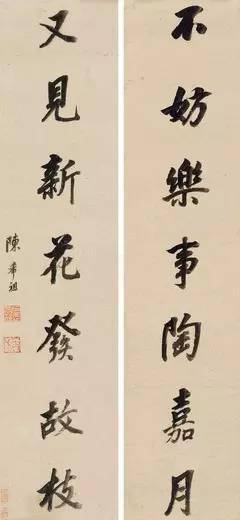 不妨樂事陶嘉月
又見新花發故枝
陳希祖